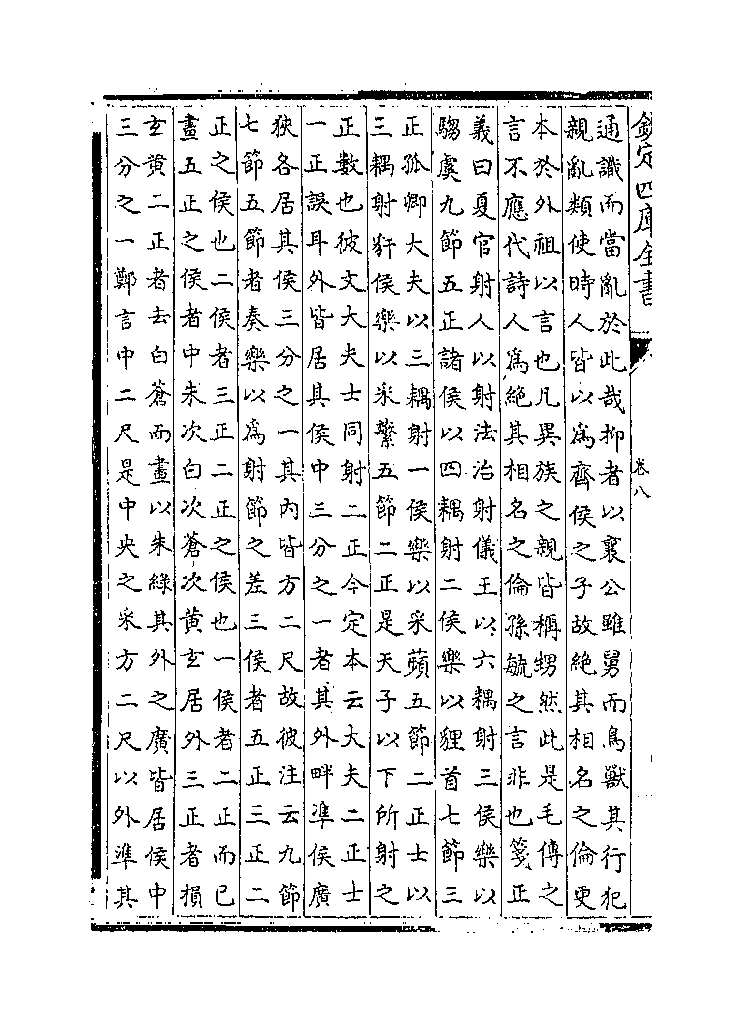 欽定四庫全書
卷八
通識而當亂於此哉抑者以襄公雖舅而鳥獸其行犯
親亂類使時人皆以為齊侯之子故絶其相名之倫更
本於外祖以言也凡異族之親皆稱甥然此是毛傳之
言不應代詩人為絶其相名之倫孫毓之言非也箋正
義曰夏官射人以射法治射儀王以六耦射三侯樂以
騶虞九節五正諸侯以四耦射二侯樂以貍首七節三
正孤卿大夫以三耦射一侯樂以采蘋五節二正士以
三耦射豻侯樂以采蘩五節二正是天子以下所射之
正數也彼文大夫士同射二正今定本云大夫二正士
一正誤耳外皆居其侯中三分之一者其外畔準侯廣
狹各居其侯三分之一其内皆方二尺故彼注云九節
七節五節者奏樂以為射節之差三侯者五正三正二
正之侯也二侯者三正二正之侯也一侯者二正而已
畫五正之侯者中朱次白次蒼次黄玄居外三正者損
玄黄二正者去白蒼而畫以朱綠其外之廣皆居侯中
三分之一鄭言中二尺是中央之采方二尺以外準其